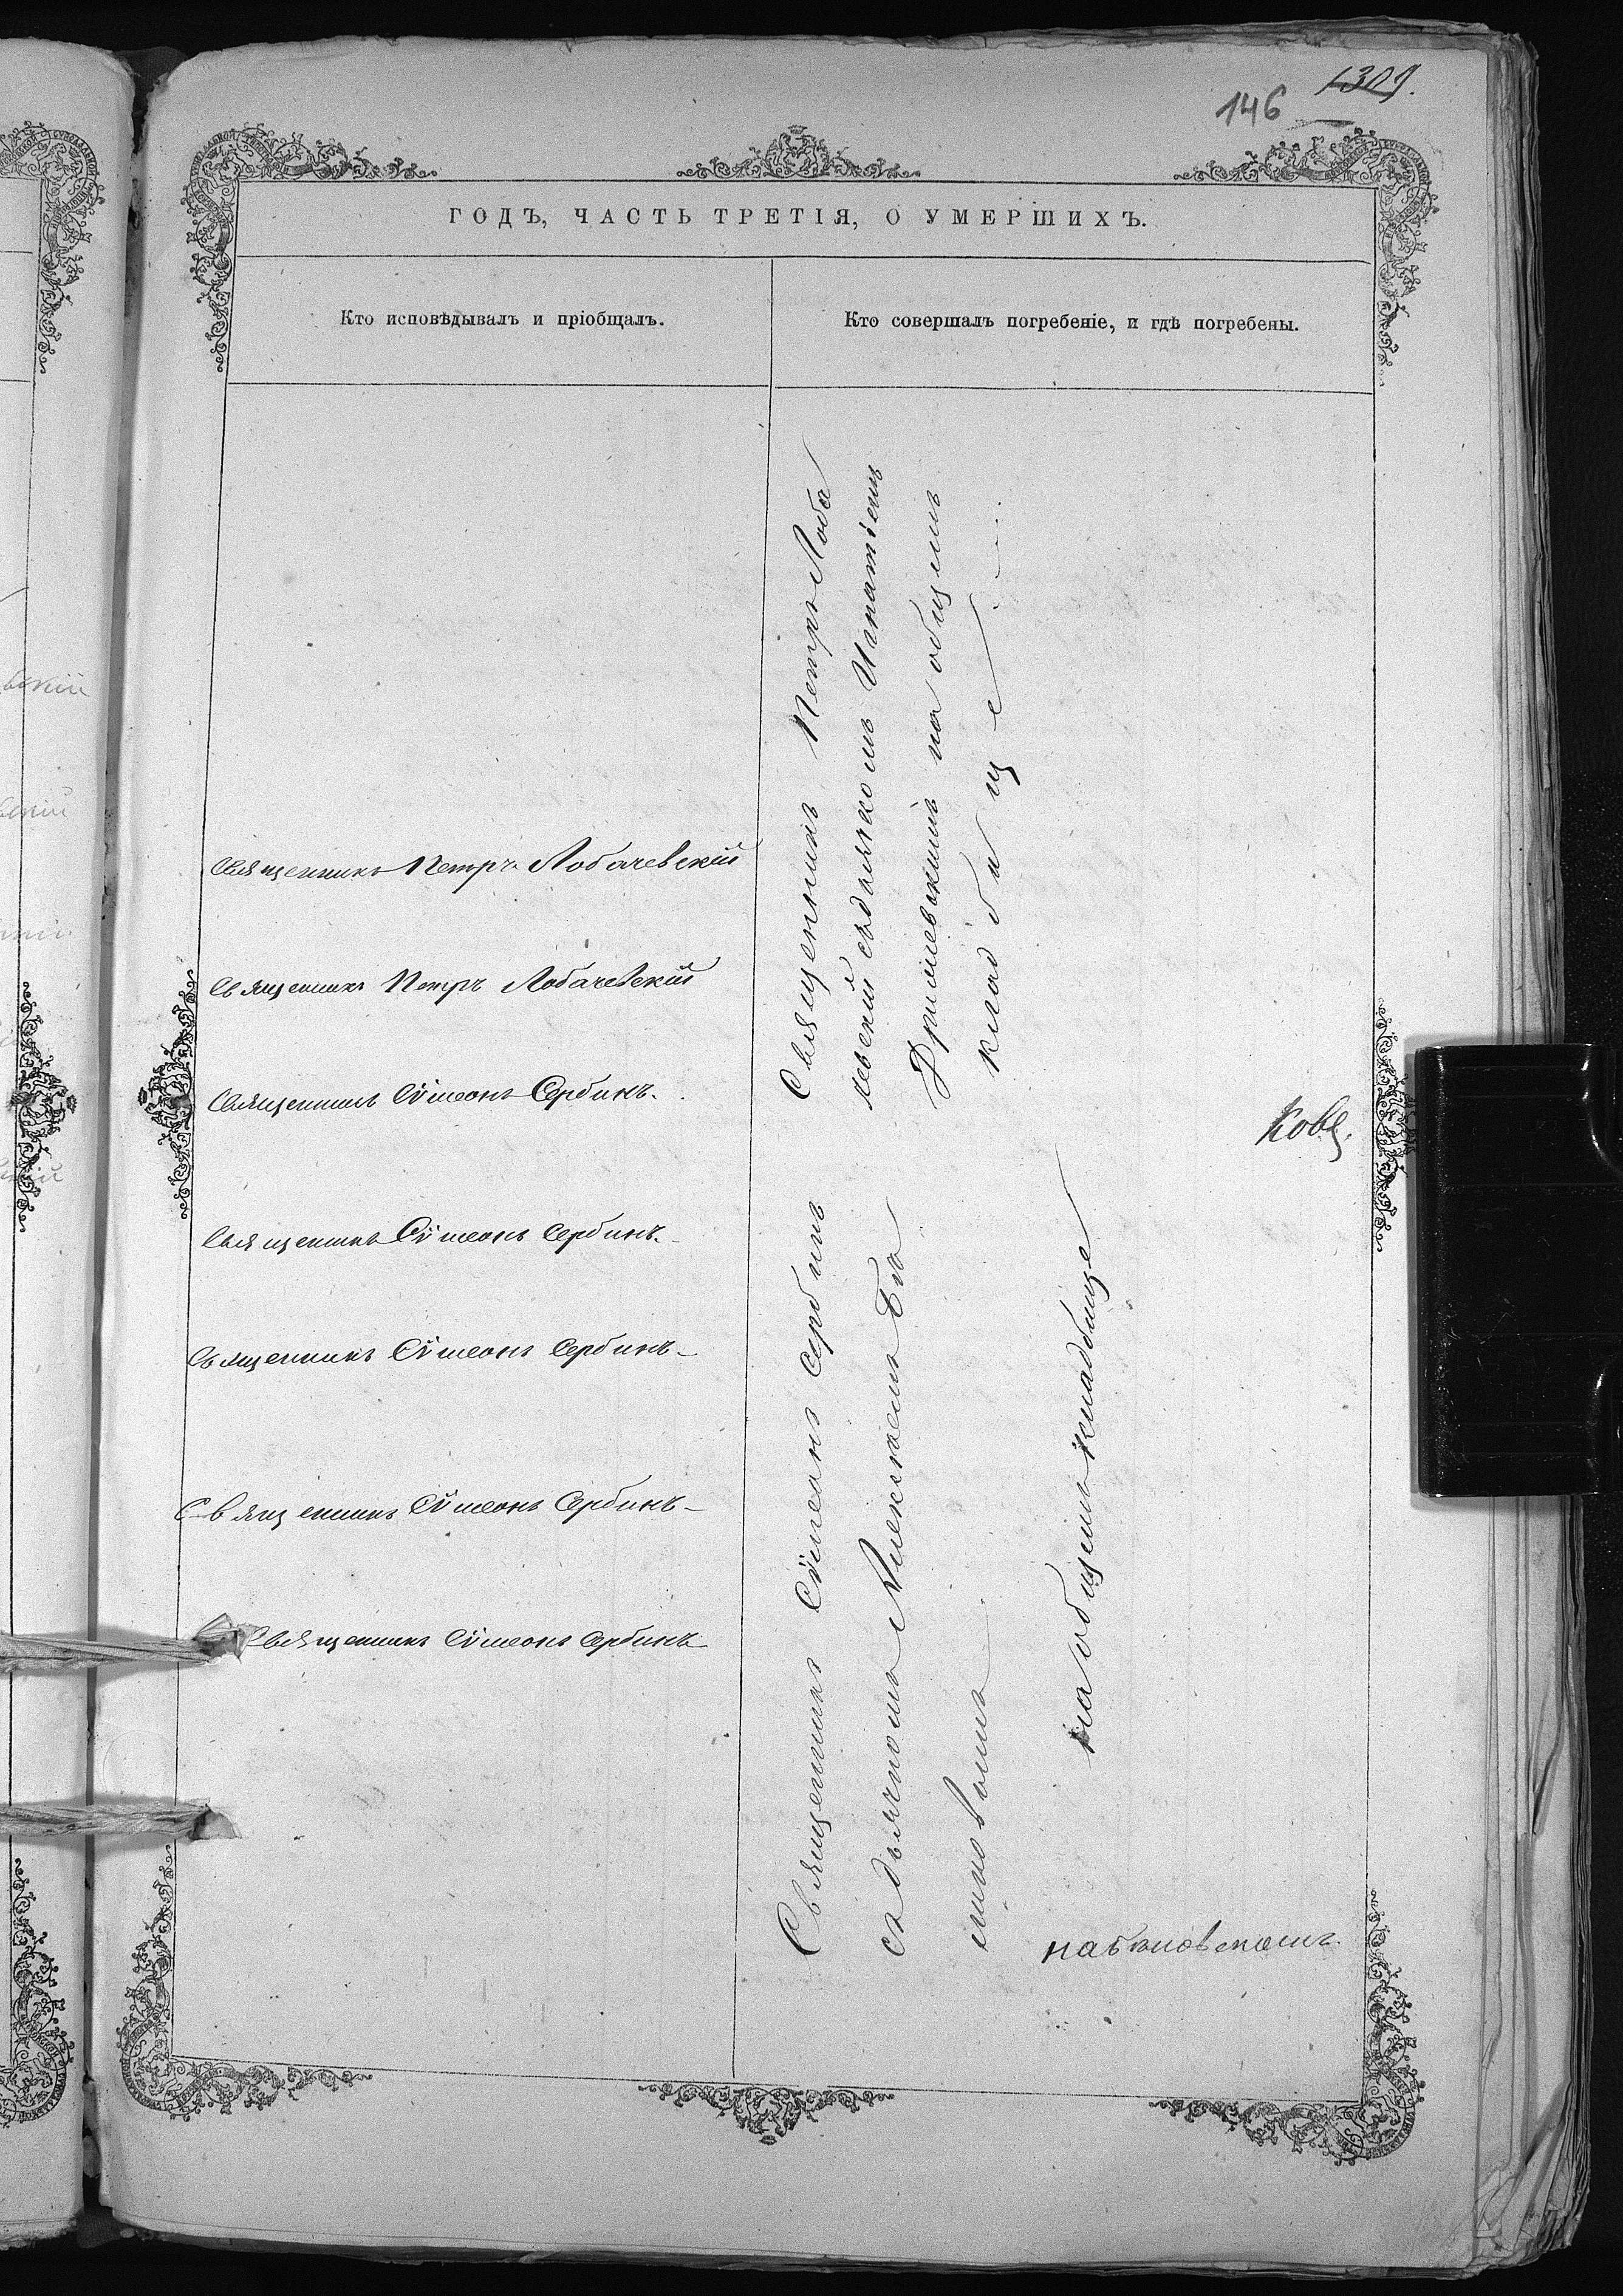 1309.
146
ГОДЪ, ЧАСТЬ ТРЕТІЯ, О УМЕРШИХЪ.
Кто исповѣдывалъ и пріобщалъ.
Кто совершалъ погребеніе, и гдѣ погребены.
Священникъ Петръ Лобачевскій
Священникъ Петръ Лобачевскій
Священникъ Сѵмеонъ Сербинъ.
Священникъ Сѵмеонъ Сербинъ.
Священникъ Сѵмеонъ Сербинъ
Священникъ Сѵмеонъ Сербинъ
Священникъ Сѵмеонъ Сербинъ
Священникъ Петръ Лоба
чевскій съ дьячкомъ Игнатіемъ
на общемъ
кладбищѣ
Священникъ Сѵмеонъ Сербинъ
съ дьячкомъ Алексѣемъ
на общемъ кладбище